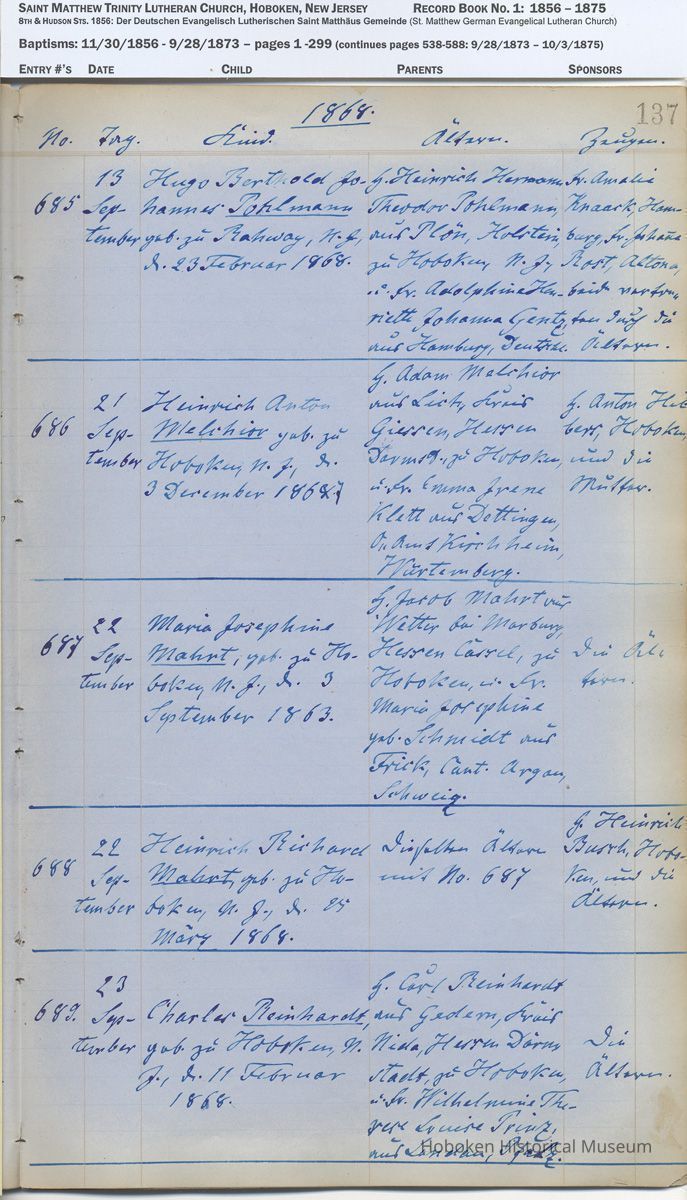 SAINT MATTHEW TRINITY LUTHERAN CHURCH, HOBOKEN, NEW JERSEY RECORD BOOK NO. 1: 1856 – 1875
8TH & HUDSON STS. 1856: Der Deutschen Evangelisch Lutherischen Saint Matthäus Gemeinde (St. Matthew German Evangelical Lutheran Church)
Baptisms: 11/30/1856 - 9/28/1873 – pages 1 -299 (continues pages 538-588: 9/28/1873 – 10/3/1875)
ENTRY #'S DATE CHILD PARENTS SPONSORS
1868.
137
No. Tag. Kind. Ältern. Zeugen.
685
13
Sep-
tember
Hugo Berthold Jo-
hannes Pohlmann
geb. zu Rahway, N. J.,
d. 23 Februar 1868.
H. Heinrich Hermann
Theodor Pohlmann,
aus Plön, Holstein,
zu Hoboken, N. J.,
u. Fr. Adolphine Hen-
riette Johanna Gentz,
aus Hamburg, Deutschl.
Fr. Amalie
Knaack, Ham-
burg, Fr. Johanna
Rost, Altona,
beide vertre-
ten durch die
Ältern.
686
21
Sep-
tember
Heinrich Anton
Melchior geb. zu
Hoboken, N. J., d.
3 December 1867
H. Adam Melchior
aus Lich, Kreis
Giessen, Hessen
Darmst., zu Hoboken,
u. Fr. Emma Irene
Klett aus Dettingen,
O. Amt Kirchheim,
Würtemberg.
H. Anton Hib
bers, Hoboken,
und die
Mutter.
687
22
Sep-
tember
Maria Josephine
Mahrt, geb. zu Ho-
boken, N. J., d. 3
September 1863.
H. Jacob Mahrt aus
Wetter bei Marburg,
Hessen Cassel, zu
Hoboken, u. Fr.
Maria Josephine
geb. Schmidt aus
Frick, Cant. Argau,
Schweiz.
Die Äl-
tern.
688
22
Sep-
tember
Heinrich Richard
Mahrt, geb. zu Ho-
boken, N. J., d. 25
März 1868.
Dieselben Ältern
mit No. 687
H. Heinrich
Busch, Hobo-
ken, und die
Ältern.
689.
23
Sep-
tember
Charles Reinhardt,
geb. zu Hoboken, N.
J., d. 11 Februar
1868.
H. Carl Reinhardt
aus Gedern, Kreis
Nida, Hessen Darm
stadt, zu Hoboken,
u. Fr. Wilhelmine The-
rese Louise Prinz,
aus Landau, Pfalz.
Die
Ältern.
Hoboken Historical Museum